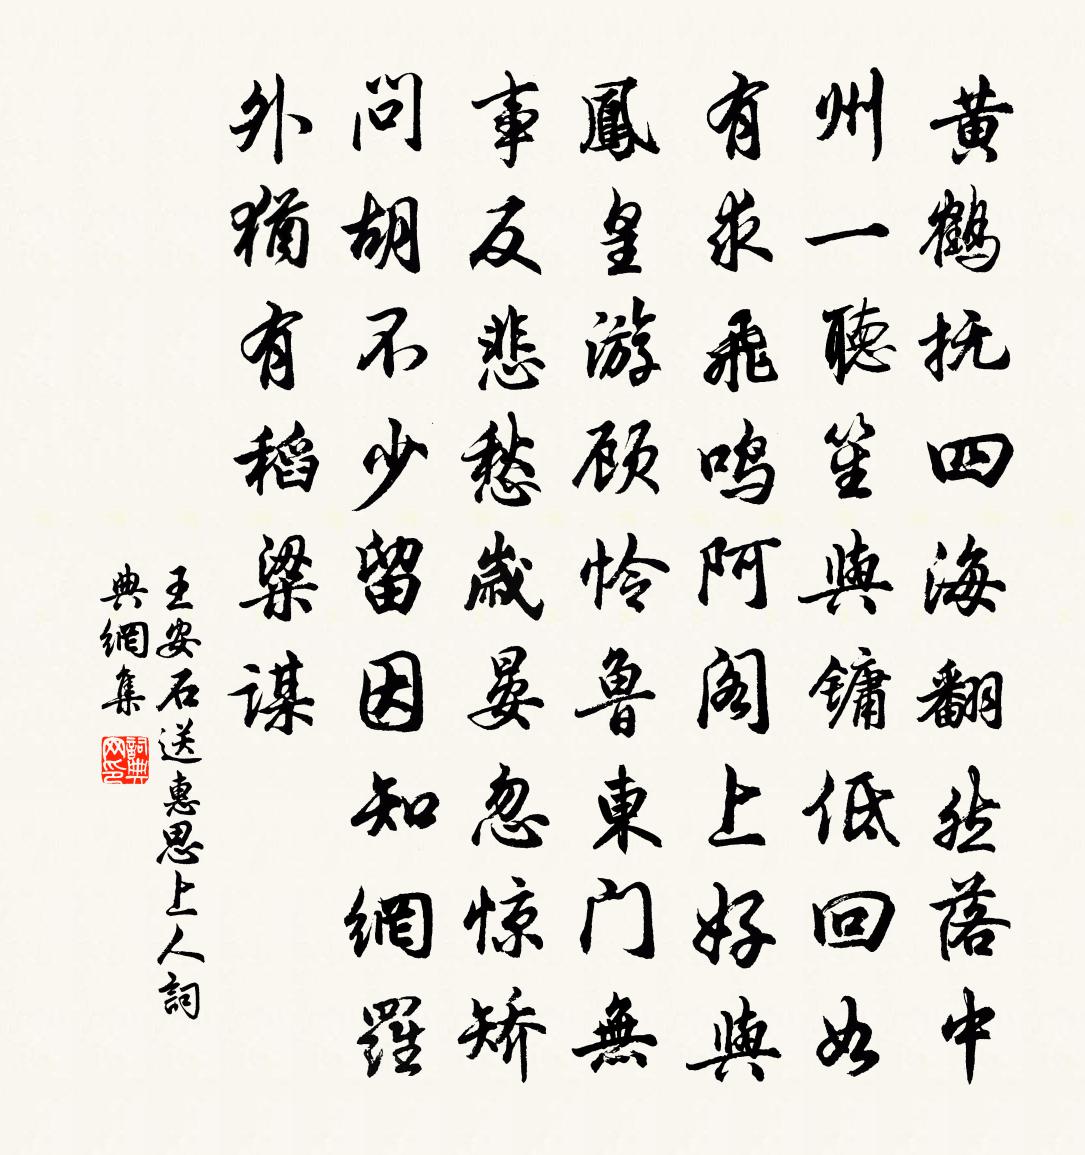 黄鶴抚四海翻然落中
州一聽笙與鏞低回如
有求飛鸣阿阁上好與
鳳皇游顾怜魯東门無
事反悲愁歲晏忽惊矫
问胡不少留因知網羅
外猶有稻粱谋
王安石送惠思上人詞
典網集
詞典网印